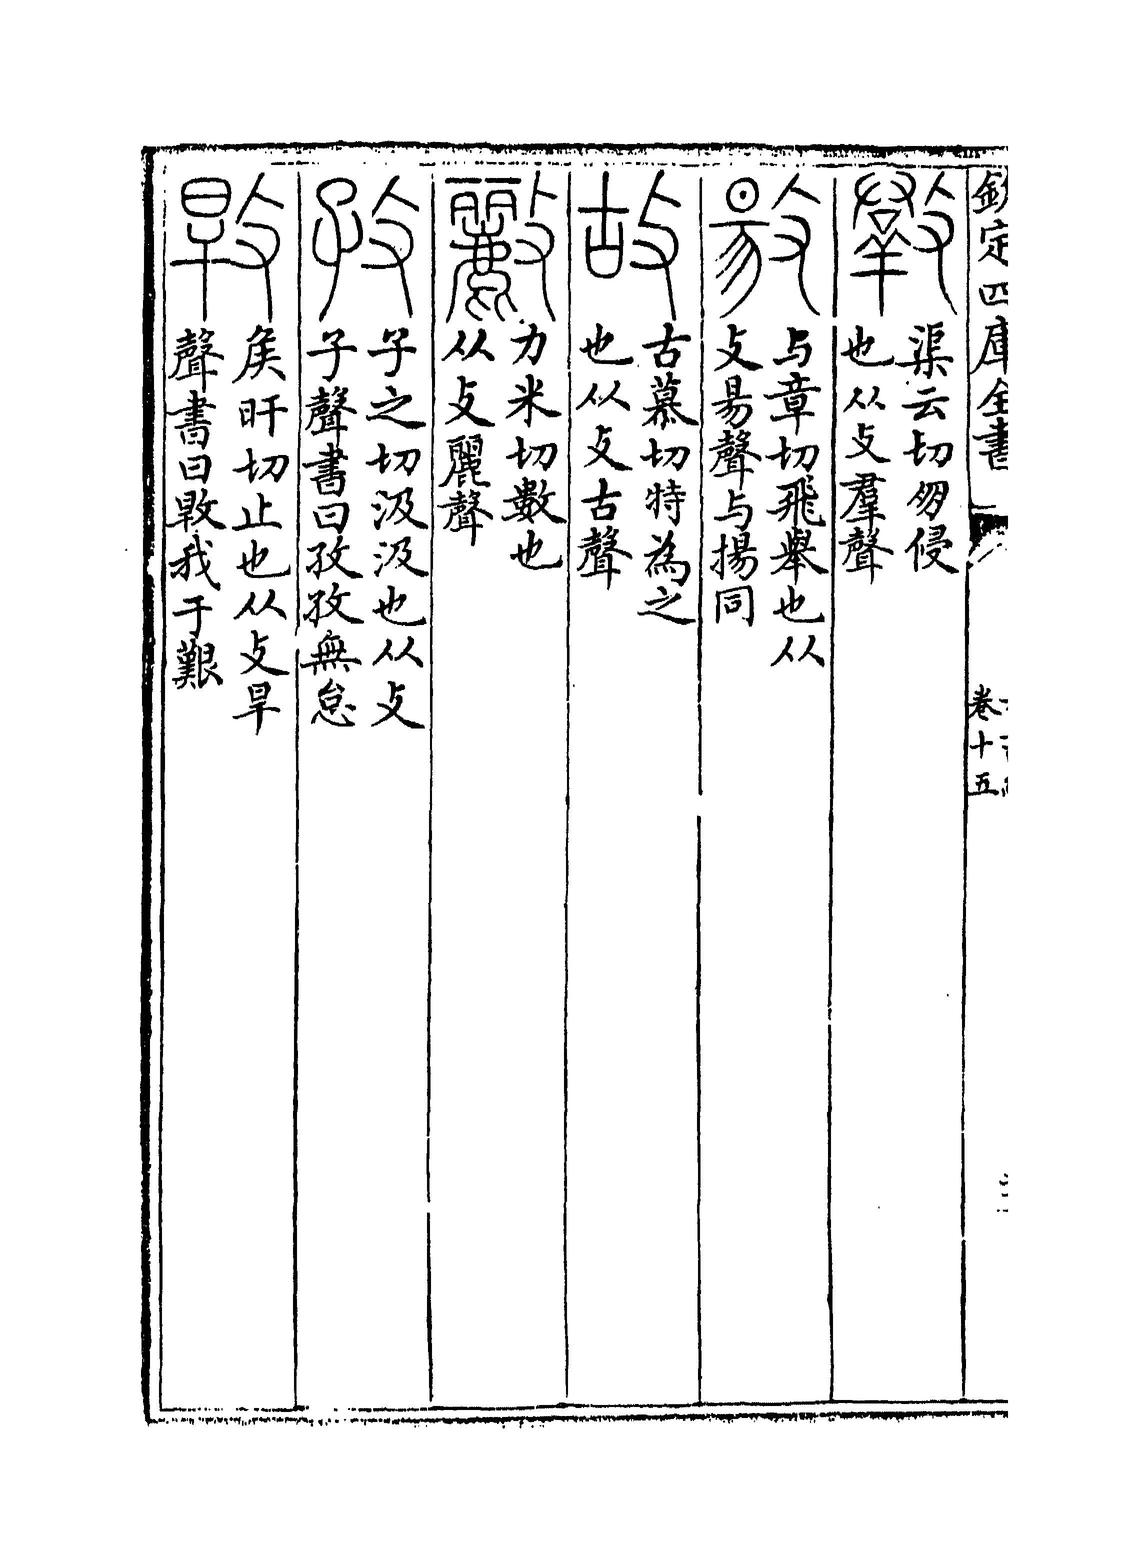 欽定四庫全書
卷十五
𣀄
渠云切朋侵
也从攴羣聲
敭
与章切飛舉也从
攴昜聲与揚同
故
古慕切特為之
也从攴古聲
𣀷
力米切數也
从攴麗聲
孜
子之切汲汲也从攴
子聲書曰孜孜無怠
㪋
矦旰切止也从攴旱
聲書曰㪋我于艱